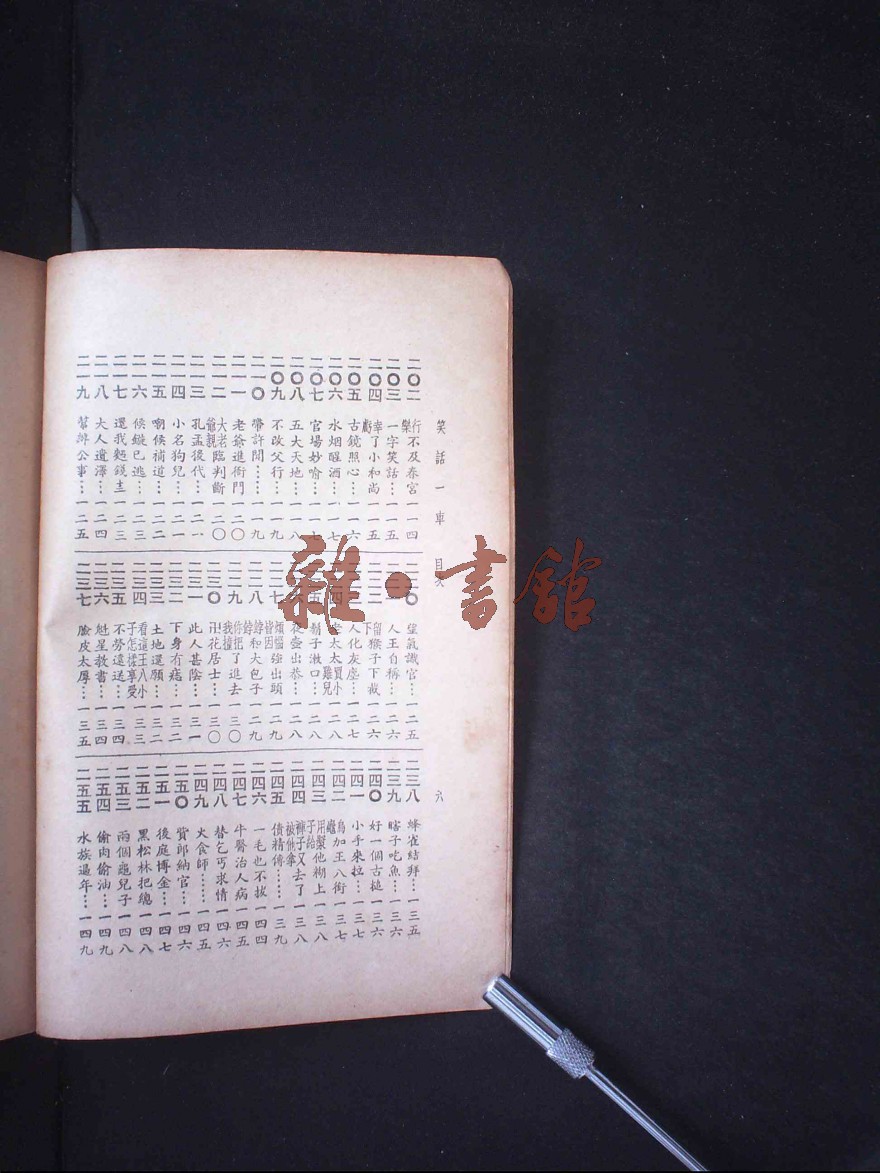 笑話一車 目次 六
二〇二 行不及春宮樂 一一四
二〇三 一字笑話… 一一五
二〇四 了小和尚 一一五
二〇五 古鏡照心… 一一六
二〇六 水烟醒酒… 一一七
二〇七 官場妙喻… 一一七
二〇八 五大天地… 一一八
二〇九 不改父行… 一一九
二一〇 帶許閙… 一一九
二一一 老爺進衙門 一二〇
二一二 大老爺親臨判斷 一二〇
二一三 孔孟後代… 一二一
二一四 小名狗兒… 一二一
二一五 嘲候補道… 一二二
二一六 候鏃已逃… 一二三
二一七 還我麵錢 一二三
二一八 大人遺澤… 一二四
二一九 幫辦公事… 一二五
二二〇 望氣識官… 一二五
人王自稱… 一二六
留猴子下截 一二六
人化灰塵… 一二七
老太太買小雞兒 一二八
鬍子漱口… 一二八
夜壺出恭… 一二八
煩惱皆因強出頭 一二九
二二八 和大包子 一二九
二二九 你把我撞了進去 一三〇
二三〇 卍花居士… 一三〇
二三一 此人甚陰… 一三一
二三二 下身有痣… 一三二
二三三 土地還願… 一三二
二三四 看這王八小子怎樣享受 一三三
二三五 不勞遠送… 一三四
二三六 魁星教書… 一三四
二三七 臉皮太厚… 一三五
二三八 蜂雀結拜… 一三五
二三九 瞎子吃魚… 一三六
二四〇 好一個古搥 一三六
二四一 小手來拉… 一三七
二四二 烏龜加王八銜 一三七
二四三 用槳子給他糊上 一三八
二四四 褲子又被他拿去了 一三八
二四五 債精傳…… 一三九
二四六 一毛也不拔 一四四
二四七 牛醫治人病 一四五
二四八 替乞丐求情 一四六
二四九 火食師…… 一四五
二五〇 貲郎納官… 一四六
二五一 後庭博金… 一四七
二五二 黑松林把總 一四八
二五三 兩個龜兒子 一四八
二五四 偷肉偷油… 一四九
二五五 水族過年… 一四九
雜·書館